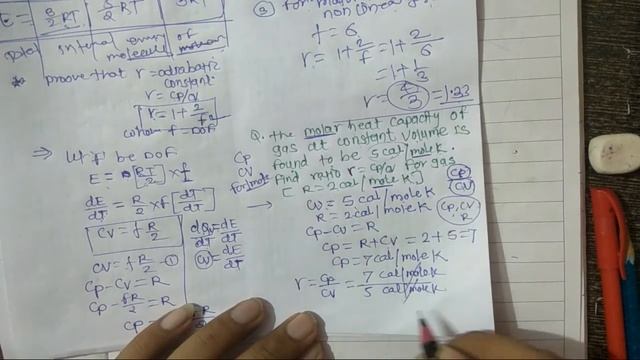 E = 3/2 RT | 5/2 RT | 3RT
total internal energy of
molecule
* prove that r = adiabatic
constant
r = CP/CV
r = 1 + 2/f
where f = DOF
⇒ Let f be DOF
E = [RT/2] × f
dE/dT = R/2 × f [dT/dT]
CV = f R/2
dQv/dT = dE/dT
CV = dE/dT
CV = f R/2 - ①
CP - CV = R
CP - fR/2 = R
CP
a
f = 6
r = 1 + 2/f = 1 + 2/6
= 1 + 1/3
r = 4/3 = 1.33
Q. the molar heat capacity of
gas at constant volume is
found to be 5 cal/mole K
find ratio r = CP/CV for gas
[R = 2 cal/mole K]
CP
CV
for mole
CP
CV
→ CV = 5 cal/mole K
R = 2 cal/mole K
CP, CV
R
CP - CV = R
CP = R + CV = 2 + 5 = 7
CP = 7 cal/mole K
r = CP/CV = 7 cal/mole K / 5 cal/mole K